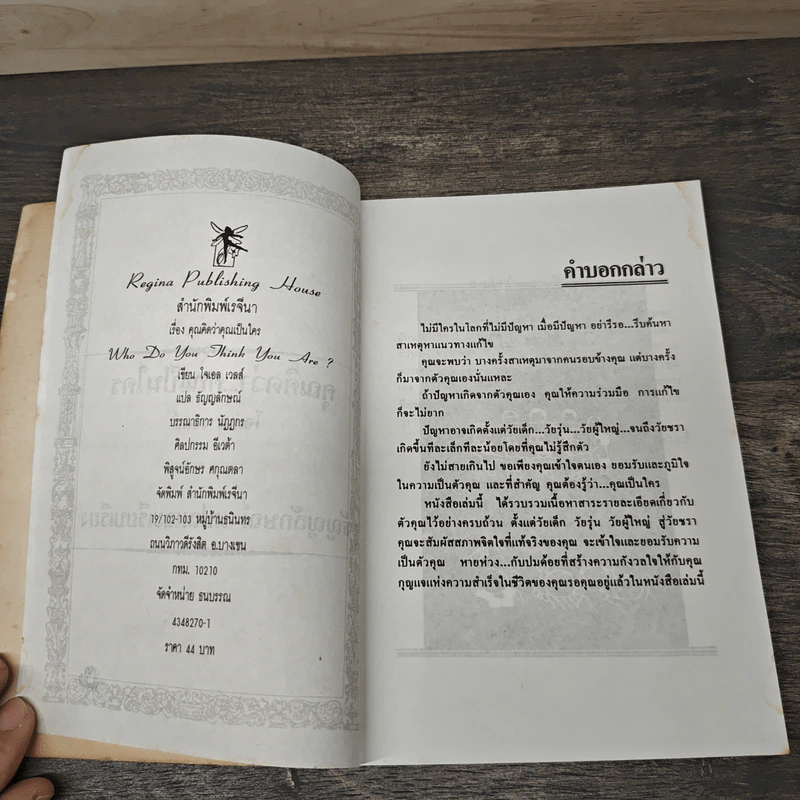 Regina Publishing House
สำนักพิมพ์เรจีนา
เรื่อง คุณคิดว่าคุณเป็นใคร
Who Do You Think You Are ?
เขียน โจเอล เวลส์
แปล ธัญญลักษณ์
บรรณาธิการ นัฏฐกร
ศิลปกรรม อีเวต้า
พิสูจน์อักษร ศกุณตลา
จัดพิมพ์ สำนักพิมพ์เรจีนา
19/102-103 หมู่บ้านธนินทร
ถนนวิภาวดีรังสิต อ.บางเขน
กทม. 10210
จัดจำหน่าย ธนบรรณ
4348270-1
ราคา 44 บาท
คำบอกกล่าว
ไม่มีใครในโลกที่ไม่มีปัญหา เมื่อมีปัญหา อย่ารีรอ...รีบค้นหา
สาเหตุหาแนวทางแก้ไข
คุณจะพบว่า บางครั้งสาเหตุมาจากคนรอบข้างคุณ แต่บางครั้ง
ก็มาจากตัวคุณเองนั่นแหละ
ถ้าปัญหาเกิดจากตัวคุณเอง คุณให้ความร่วมมือ การแก้ไข
ก็จะไม่ยาก
ปัญหาอาจเกิดตั้งแต่วัยเด็ก...วัยรุ่น...วัยผู้ใหญ่...จนถึงวัยชรา
เกิดขึ้นทีละเล็กทีละน้อยโดยที่คุณไม่รู้สึกตัว
ยังไม่สายเกินไป ขอเพียงคุณเข้าใจตนเอง ยอมรับและภูมิใจ
ในความเป็นตัวคุณ และที่สำคัญ คุณต้องรู้ว่า...คุณเป็นใคร
หนังสือเล่มนี้ ได้รวบรวมเนื้อหาสาระรายละเอียดเกี่ยวกับ
ตัวคุณไว้อย่างครบถ้วน ตั้งแต่วัยเด็ก วัยรุ่น วัยผู้ใหญ่ สู่วัยชรา
คุณจะสัมผัสสภาพจิตใจที่แท้จริงของคุณ จะเข้าใจและยอมรับความ
เป็นตัวคุณ หายห่วง...กับปมด้อยที่สร้างความกังวลใจให้กับคุณ
กุญแจแห่งความสำเร็จในชีวิตของคุณรอคุณอยู่แล้วในหนังสือเล่มนี้